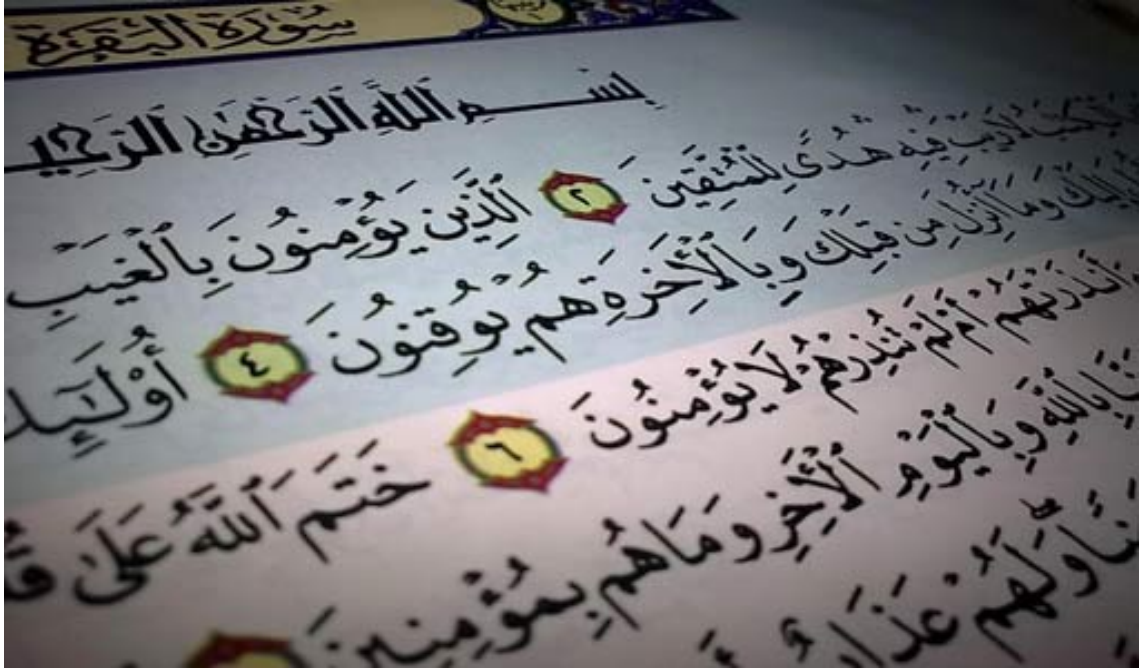 سُورَةُ البَقَرَةِ
بِسْمِ ٱللَّهِ ٱلرَّحْمَٰنِ
لَا رَيْبَ فِيهِ هُدًى لِّلْمُتَّقِينَ ٢ ٱلَّذِينَ يُؤْمِنُونَ بِٱلْغَيْبِ
إِلَيْكَ وَمَآ أُنزِلَ مِن قَبْلِكَ وَبِٱلْأَخِرَةِ هُمْ يُوقِنُونَ ٤
ءَأَنذَرْتَهُمْ أَمْ لَمْ تُنذِرْهُمْ لَا يُؤْمِنُونَ ٦ خَتَمَ ٱللَّهُ عَلَىٰ
بِٱللَّهِ وَبِٱلْيَوْمِ ٱلْأَخِرِ وَمَا هُم بِمُؤْمِنِينَ
وَلَهُمْ